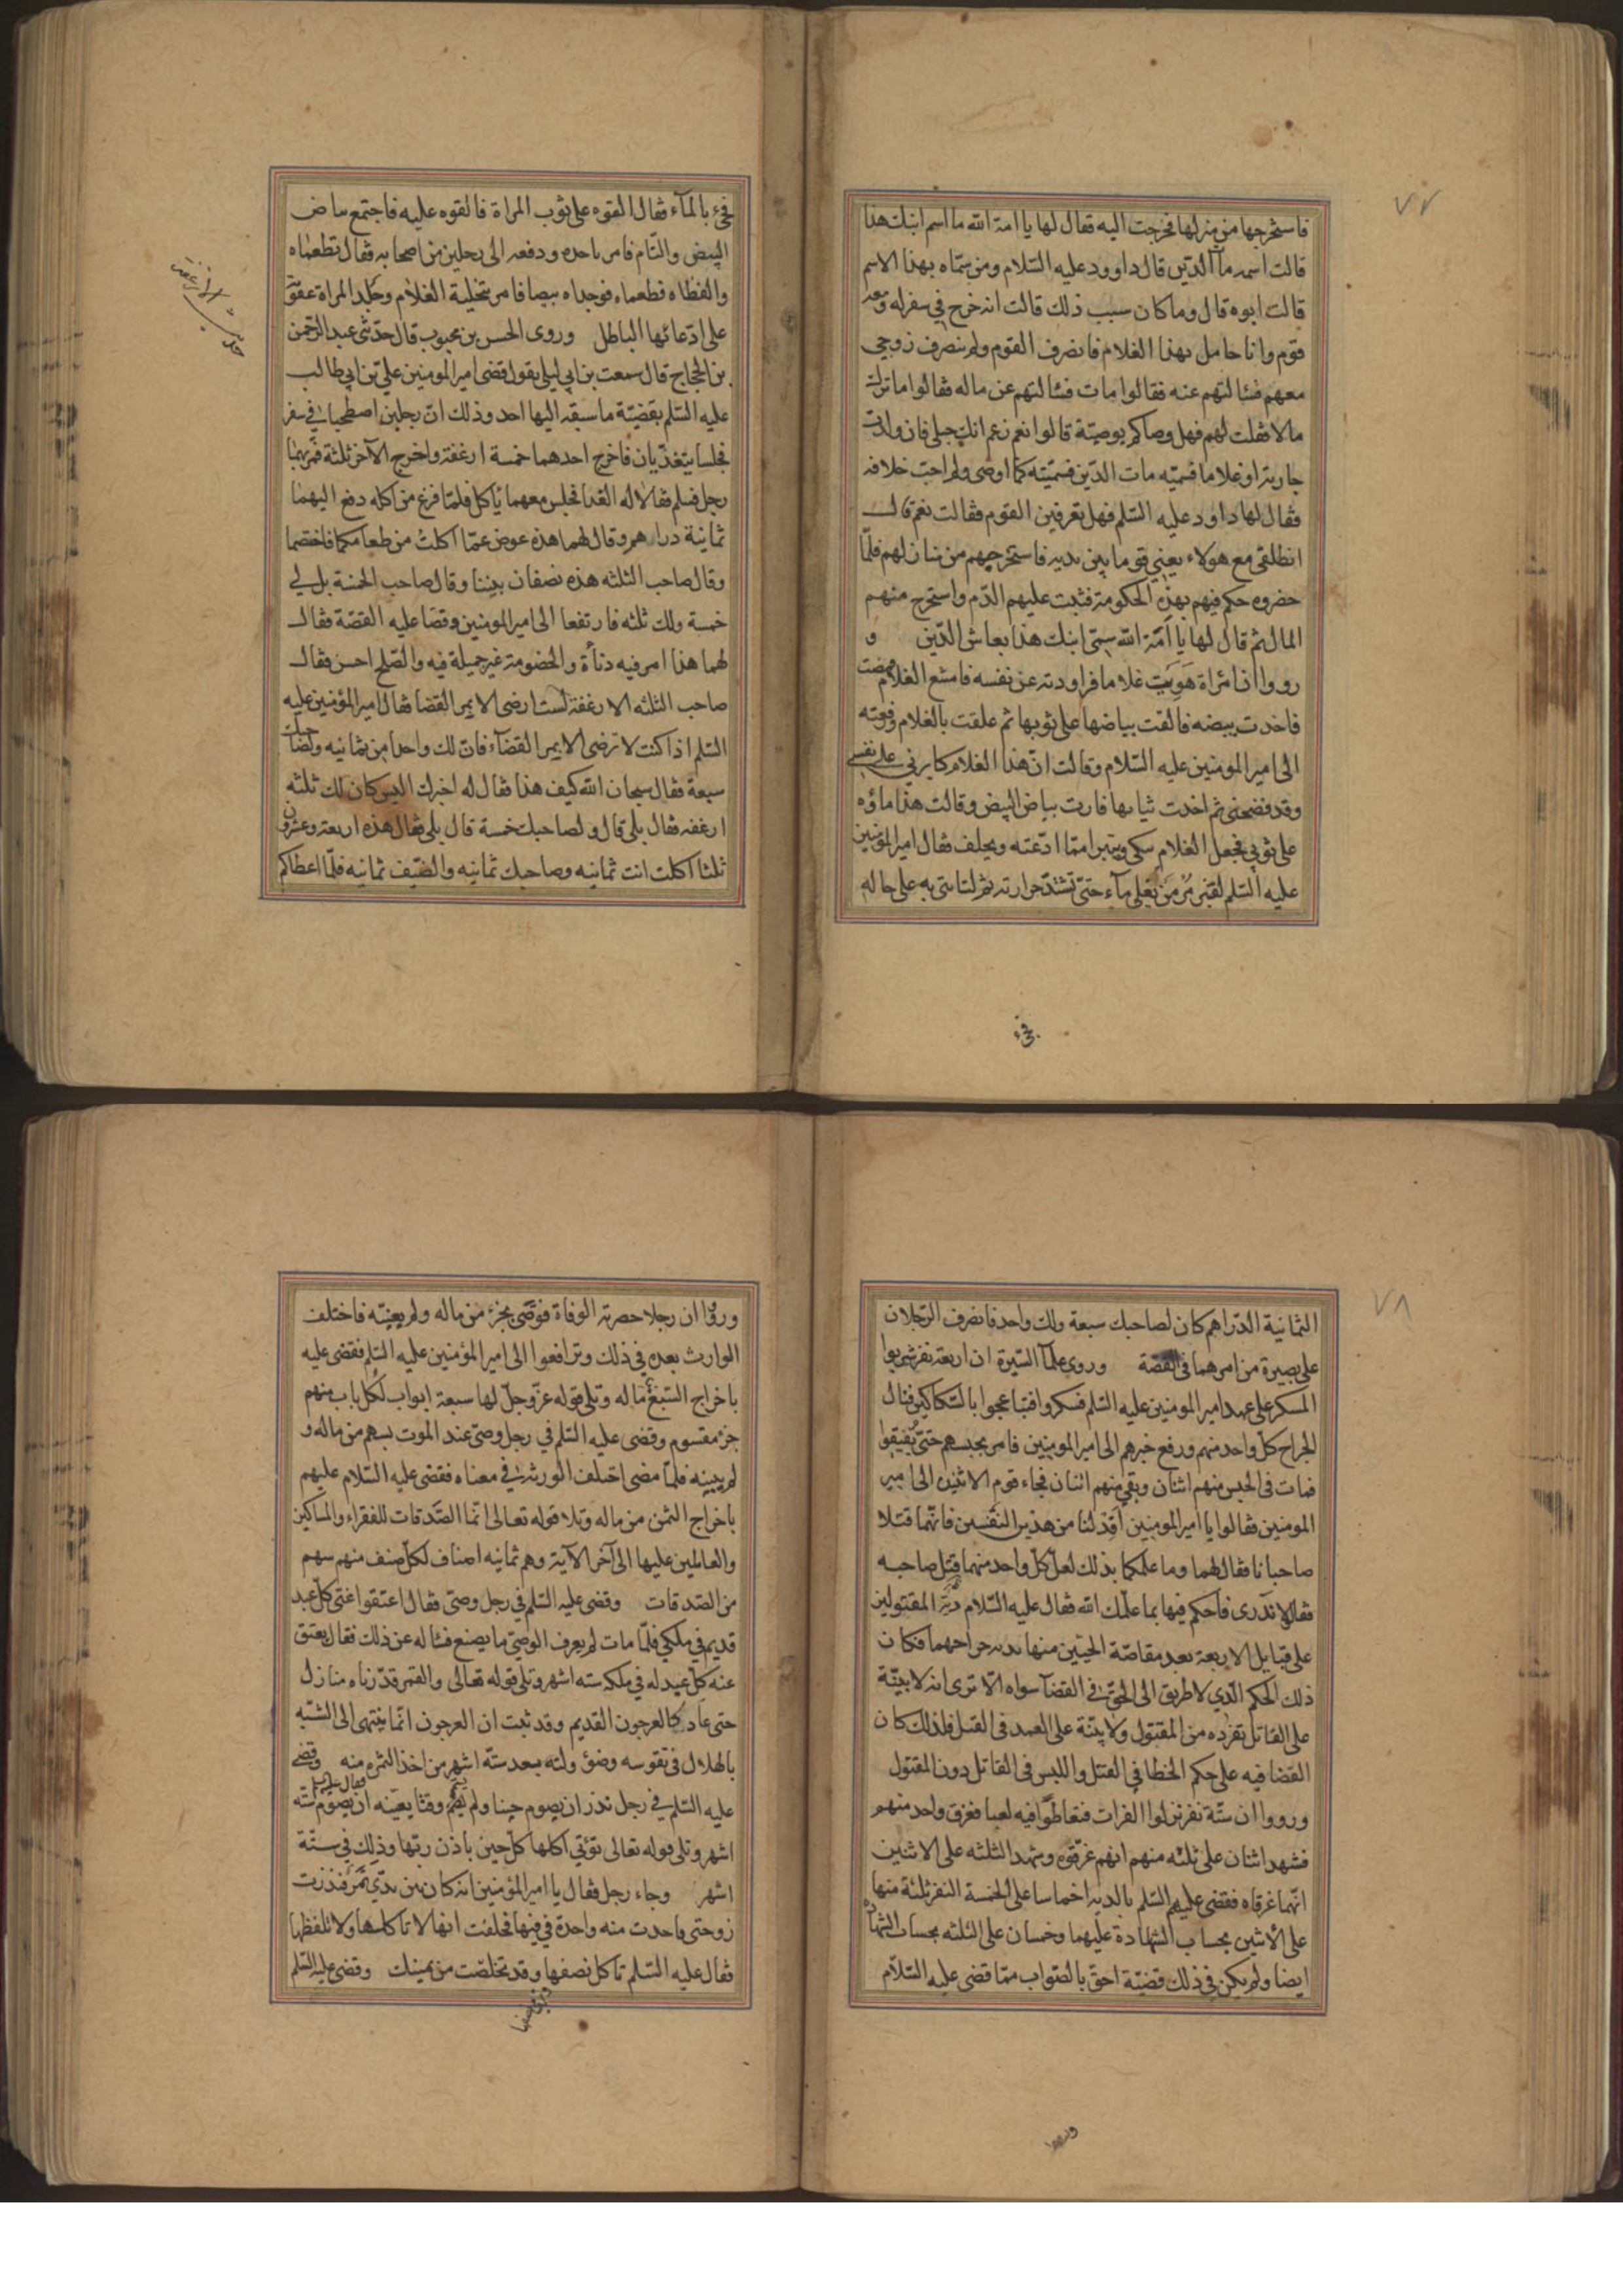 ٧٧
فاستخرجها من منزلها فخرجت اليه فقال لها يا امة الله ما اسم ابنك هذا
قالت اسمه مات الدّين قال داوود عليه السّلام ومن سمّاه بهذا الاسم
قالت ابوه قال وما كان سبب ذلك قالت انه خرج في سفر له ومعه
قوم وانا حامل بهذا الغلام فانصرف القوم ولم ينصرف زوجي
معهم فسالتهم عنه فقالوا مات فسالتهم عن ماله فقالوا ما ترك
مالا فقلت لهم فهل وصاكم بوصيّة قالوا نعم زعم انك حبلى فان ولدت
جارية او غلاما فسمّيه مات الدّين فسمّيته كما اوصى ولم احب خلافه
فقال لها داود عليه السّلم فهل تعرفين القوم فقالت نعم قال
انطلقي مع هولاء يعني قوما بين يديه فاستخرجهم من منازلهم فلمّا
حضروه حكم فيهم بهذه الحكومة فثبت عليهم الدّم واستخرج منهم
المال ثم قال لها يا اَمَة الله سمّى ابنك هذا بعاش الدّين و
رووا ان امراة هَوَيَت غلاما فراودته عن نفسه فامتنع الغلام فمضت
فاخدت بيضه فالقت بياضها على ثوبها ثم علقت بالغلام ورفعته
الى امير المومنين عليه السّلام وقالت انّ هذا الغلام كابرني على نفسي
وقد فضحني ثم اخدت ثيابها فارت بياض البيض وقالت هذا ماؤه
على ثوبي فجعل الغلام يبكي ويتبرا ممّا ادّعته ويحلف فقال امير المؤمنين
عليه السّلم لقنبر مُر من يَغلي مآء حتىّ تشتدّ حرارته ثم لتاتني به على حاله
فجئ
فجئ بالمآء فقال القوه على ثوب المراة فالقوه عليه فاجتمع بياض
البيض والتام فامر باخده ودفعه الى رجلين من اصحابه فقال تطعماه
والفظاه فطعماه فوجداه بيضا فامر بتخلية الغلام وجَلد المراة عقوبة
على ادّعائها الباطل وروى الحسن بن محبوب قال حدّثني عبد الرّحمن
بن الحجاج قال سمعت بن ابي ليلى يقول قضى امير المومنين عليّ بن ابي طالب
عليه السّلم بقضيّة ما سبقه اليها احد وذلك انّ رجلين اصطحبا في سفر
فجلسا يتغدّيان فاخرج احدهما خمسة ارغفة واخرج الآخر ثلثة فمرّ بهما
رجل فسلم فقالا له الغدا فجلس معهما ياكل فلمّا فرغ من اكله دفع اليهما
ثمانية دراهم وقال لهما هذه عوض عمّا اكلت من طعامكما فاختصما
وقال صاحب الثلثه هذه نصفان بيننا وقال صاحب الخمسة بل لي
خمسة ولك ثلثه فارتفعا الى امير المومنين وقصا عليه القصّة فقال
لهما هذا امر فيه دناءة والخصومة غير جميلة فيه والصّلح احسن فقال
صاحب الثلثه الارغفة لست ارضى الا بمر القضا فقال امير المؤمنين عليه
السّلم اذا كنت لا ترضى الا بمر القضآء فان لك واحدا من ثمانيه ولصاحبك
سبعة فقال سبحان الله كيف هذا فقال له اخبرك اليس كان لك ثلثه
ارغفه فقال بلى قال ولصاحبك خمسة قال بلى فقال هذه اربعة وعشرون
ثلثا اكلت انت ثمانيه وصاحبك ثمانيه والضّيف ثمانيه فلمّا اعطاكم
٧٨
الثمانية الدّراهم كان لصاحبك سبعة ولك واحد فانصرف الرّجلان
على بصيرة من امرهما في القصّة وروى علمآ السّيرة ان اربعة نفر شربوا
المسكر على عهد امير المومنين عليه السّلم فسكروا فتباعجوا بالسّكاكين فنال
الجراح كلّ واحد منهم ورفع خبرهم الى امير المومنين فامر بحبسهم حتىّ يُفيقوا
فمات في الحبس منهم اثنان وبقي منهم اثنان فجاء قوم الاثنين الى امير
المومنين فقالوا يا امير المومنين اَقِدْ لنا من هذين النّفسين فانّهما قتلا
صاحبانا فقال لهما وما علمكما بذلك لعلّ كلّ واحد منهما قتل صاحبه
فقالا لا ندرى فاحكم فيها بما علّمك الله فقال عليه السّلام دية المقتولين
على قبايل الاربعة بعد مقاصّة الحيّين منها بدية جراحهما فكان
ذلك الحكم الّذي لا طريق الى الحقّ في القضآ سواه الا ترى انه لا بيّنة
على القاتل تفرده من المقتول ولا بيّنة على العمد في القتل فلذلك كان
القضا فيه على حكم الخطا في القتل واللبس في القاتل دون المقتول
ورووا ان ستّة نفر نزلوا الفرات فتعاطّوا فيه لعبا فغرق واحد منهم
فشهد اثنان على ثلثه منهم انهم غرّقوه وشهد الثلثه على الاثنين
انّهما غرقاه فقضى عليهم السّلم بالديه اخماسا على الخمسة النفر ثلثة منها
على الاثنين بحساب الشّهادة عليهما وخمسان على الثلثه بحساب الشّهادة
ايضا ولم يكن في ذلك قضيّة احقّ بالصّواب ممّا قضى عليه السّلام
ورووا
ورووا ان رجلا حضرته الوفاة فوصّى بجزء من ماله ولم يعيّنه فاختلف
الوارث بعده في ذلك وترافعوا الى امير المؤمنين عليه السّلم فقضى عليه
باخراج السّبع من ماله وتلى قوله عزّ وجلّ لها سبعة ابواب لكلّ باب منهم
جزء مقسوم وقضى عليه السّلم في رجل وصّى عند الموت بسهم من ماله و
لم يبينه فلمّا مضى اختلف الورثة في معناه فقضى عليه السّلام عليهم
باخراج الثمن من ماله وتلا قوله تعالى انّما الصّدقات للفقراء والمساكين
والعاملين عليها الى آخر الآية وهم ثمانيه اصناف لكلّ صنف منهم سهم
من الصّدقات وقضى عليه السّلم في رجل وصّى فقال اعتقوا عنّي كلّ عبد
قديم في ملكي فلمّا مات لم يعرف الوصيّ ما يصنع فساله عن ذلك فقال يعتق
عنه كلّ عبد له في ملكه سته اشهر وتلى قوله تعالى والقمر قدّرناه منازل
حتى عاد كالعرجون القديم وقد ثبت ان العرجون انّما ينتهى الى الشّبه
بالهلال في تقوسه وضؤولته بعد ستّه اشهر من اخذ الثمره منه وقضى
عليه السّلم في رجل نذر ان يصوم حينا ولم يسم وقتا بعينه ان يصوم سته
اشهر وتلى قوله تعالى تؤتي اكلها كلّ حين باذن ربّها وذلك في ستّة
اشهر وجاء رجل فقال يا امير المؤمنين انه كان بين يديّ تمر فبذرت
زوجتي فاخدت منه واحدة في فيها فحلفت انها لا تاكلها ولا تلفظها
فقال عليه السّلم تاكل نصفها وقد تخلصّت من يمينك وقضى عليه السّلم